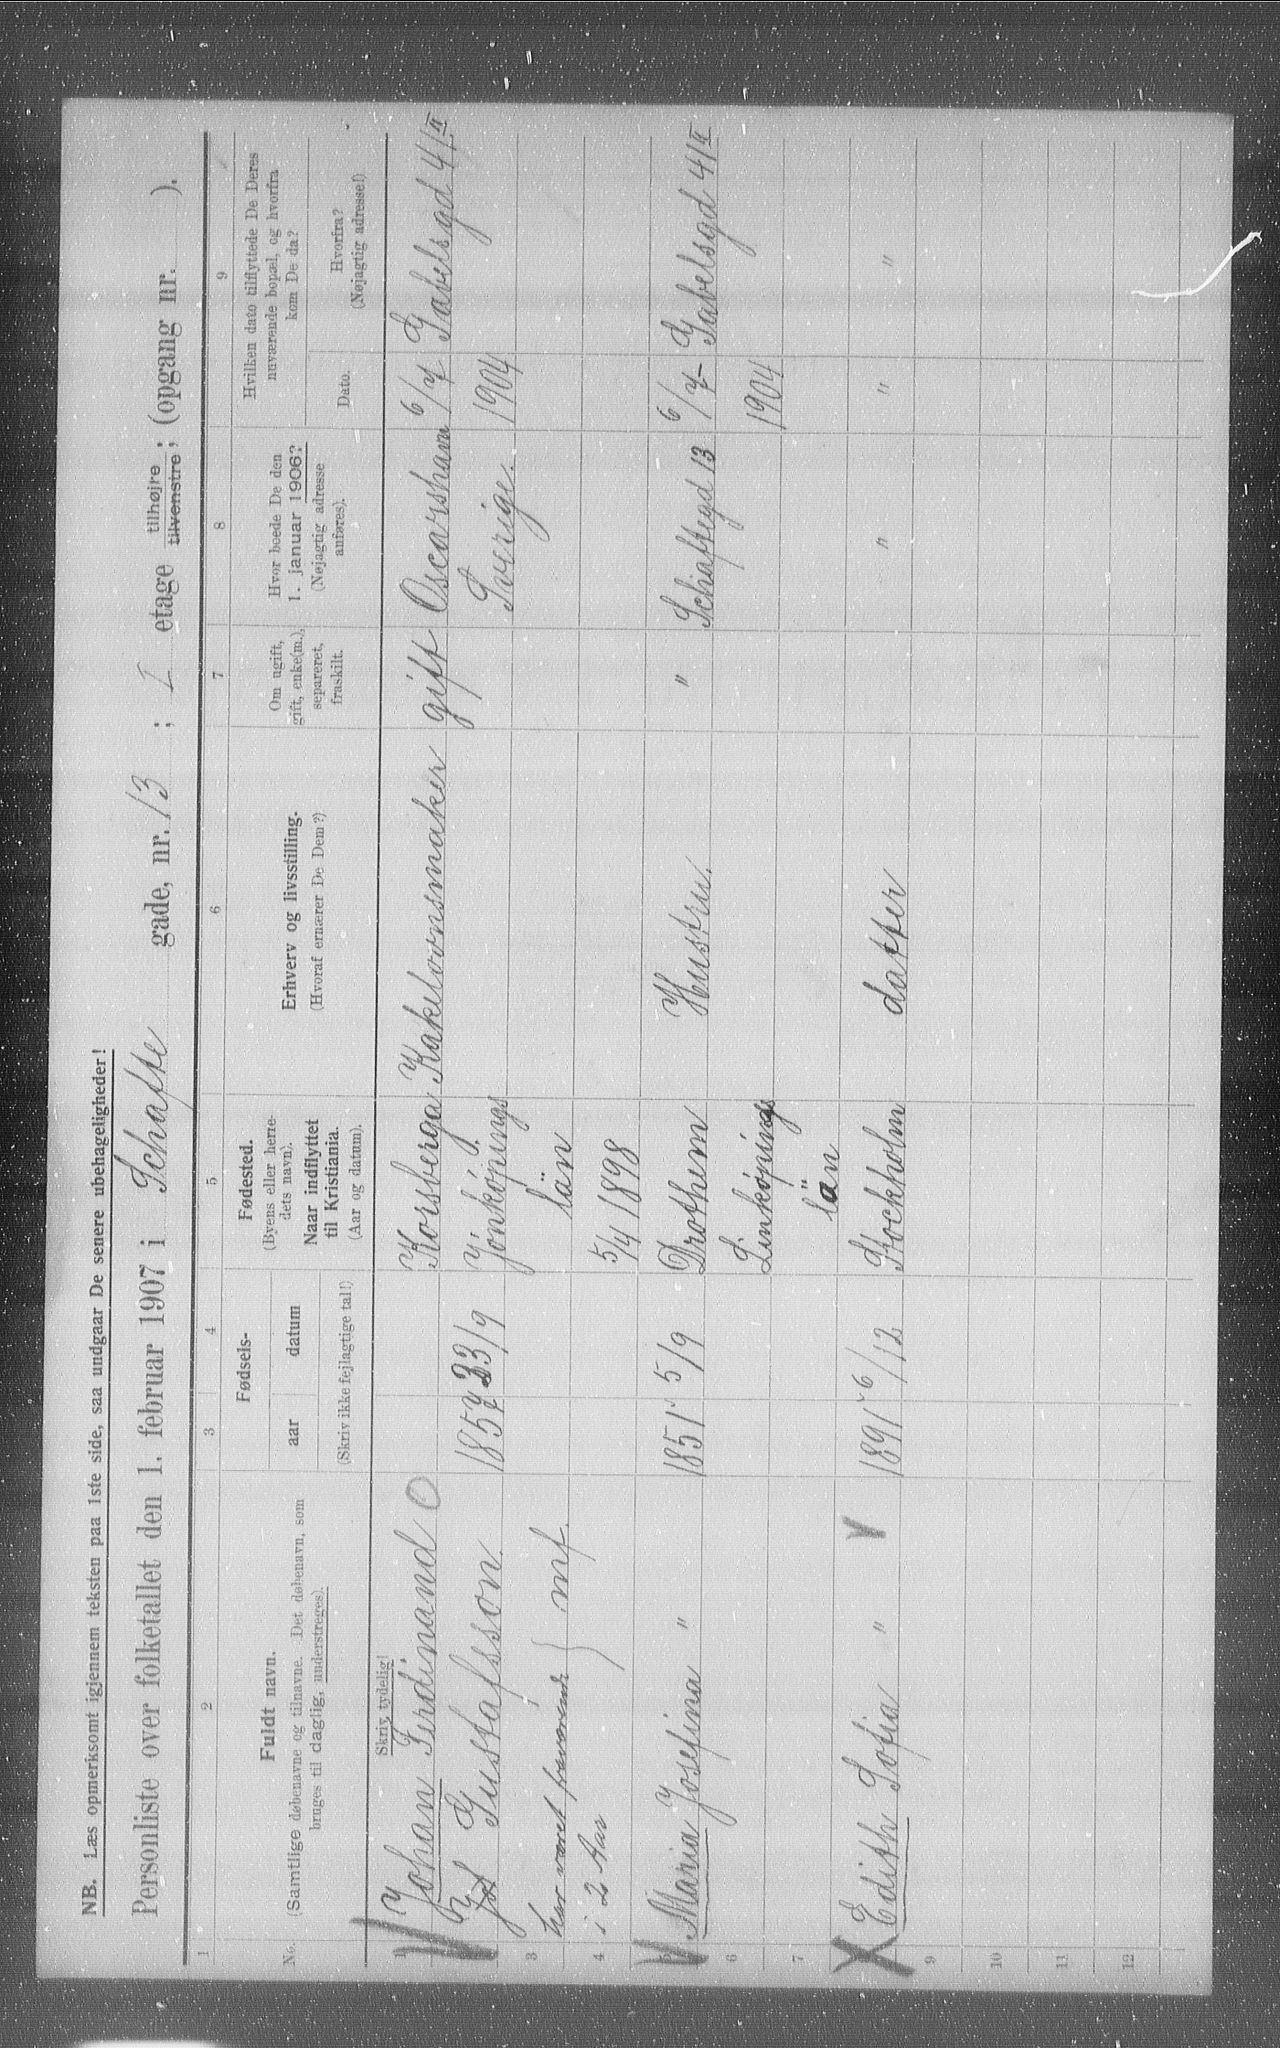 NB. Læs opmerksomt igjennem teksten paa 1ste side, saa undgaar De senere ubehageligheder!
Personliste over folketallet den 1. februar 1907 i Schafte gade, nr. 13 ; I etage tilhøjre tilvenstre ; (opgang nr. ).
1 2 3 4 5 6 7 8 9
No.
Fuldt navn.
(Samtlige døbenavne og tilnavne. Det døbenavn, som
bruges til daglig, understreges).
Fødsels-
aar datum
(Skriv ikke fejlagtige tal!)
Fødested.
(Byens eller herre-
dets navn).
Naar indflyttet
til Kristiania.
(Aar og datum).
Erhverv og livsstilling.
(Hvoraf ernærer De Dem?)
Om ugift,
gift, enke(m.),
separeret,
fraskilt.
Hvor boede De den
1. januar 1906?
(Nøjagtig adresse
anføres).
Hvilken dato tilflyttede De Deres
nuværende bopæl, og hvorfra
kom De da?
Dato.
Hvorfra?
(Nøjagtig adresse!)
Skriv tydelig!
1 Johan Ferdinand O Korsberga Kakelovnsmaker gift Oscarshavn 6/4 Gabelsgd 41 II
Gustafsson. 23/9 Jönköpings Sverige. 1904
3 har været fraværende } mf. län
4 i 2 Aar 5/4 1898
Maria Josefina " 1851 5/9 Drothem Hustru. " Schaftegd 13 6/4 Gabelsgd 41 II
6 Linköpings 1904
7 län
Edith Sofia " 1891 6/12 Stockholm datter " " "
9
10
11
12